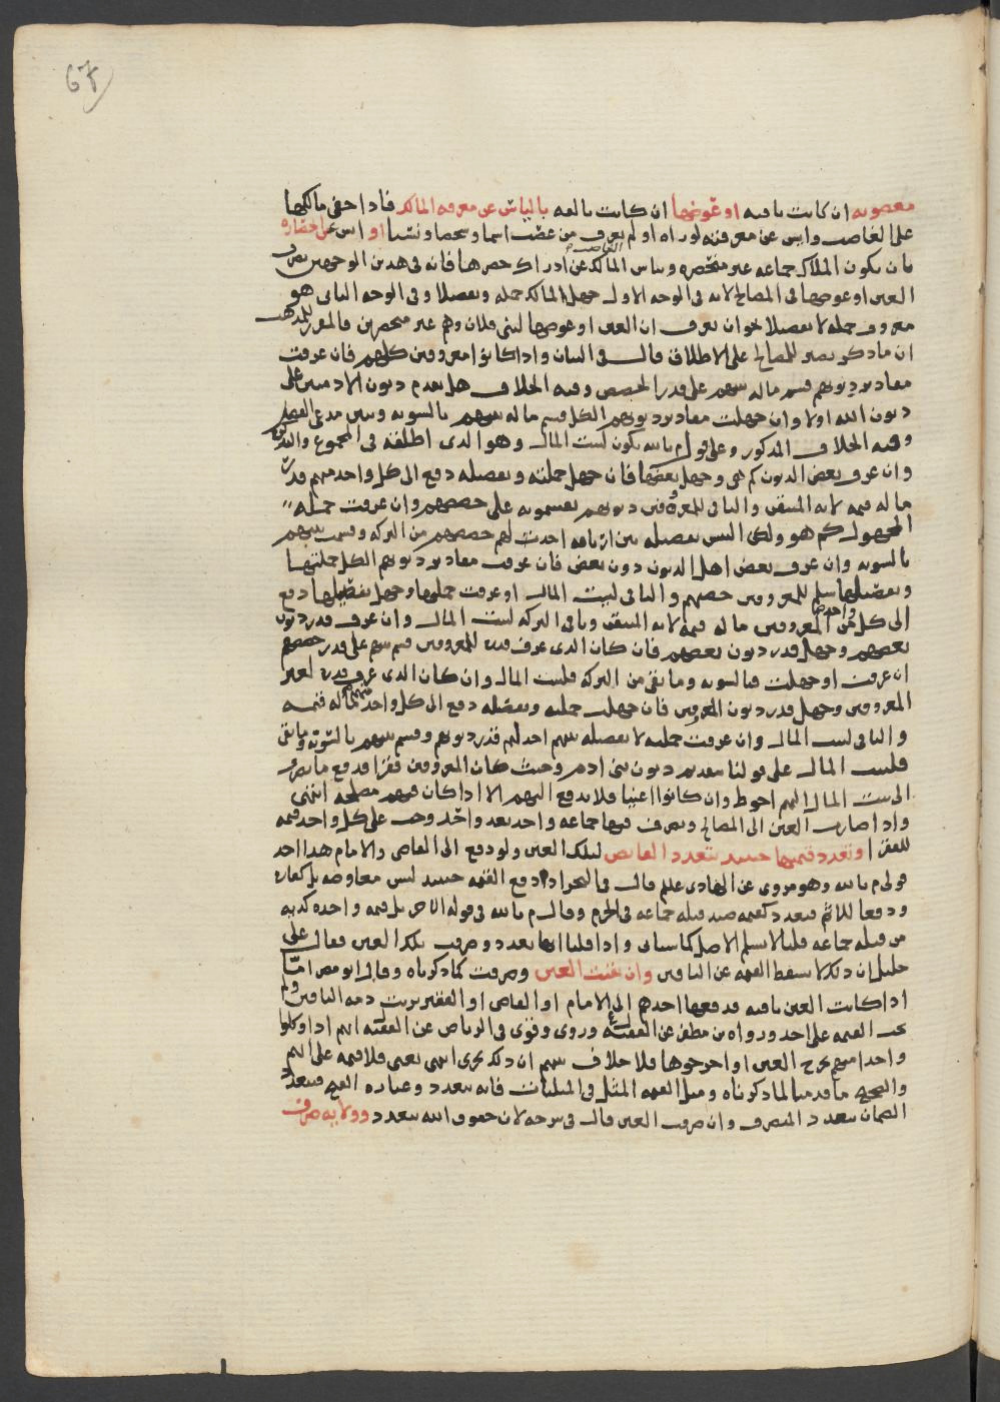 67
مغصوبه ان كانت باقيه او عوضها ان كانت تالفه بالياس عن معرفه المالك فاذا خفى مالكها
على الغاصب وايس عن معرفته لوراه او لم يعرف من غصب اسما وشخصا ونسبا او ايس عن انحصاره
بان يكون الملاك جماعه غير منحصره وياس المالك عن ادراك حصرها فانه فى هذين الوجهين تصرف
العين او عوضها فى المصالح لانه فى الوجه الاول جهل المالك جمله وتفصيلا وفى الوجه الثانى هو
معروف جمله لا تفصيلا نحو ان يعرف ان العين او عوضها لبنى فلان وهم غير منحصرين فالمقرر للمذهب
ان ما ذكر يصير للمصالح على الاطلاق قال فى البيان واذا كانوا معروفين كلهم فان عرفت
مقادير ديونهم قسم ماله بينهم على قدر الحصص وفيه الخلاف هل يقدم ديون الادميين على
ديون الله اولا وان جهلت مقادير ديونهم الكل قسم ماله بينهم بالسويه وبين مدعى الفضل
وفيه الخلاف المذكور وعلى قول م بالله يكون لبيت المال وهو الذى اطلقه فى المجموع
وان عرف بعض الديون كم هى وجهل بعضها فان جهل جملته وتفصيله دفع الى كل واحد منهم قدر
ماله قيمه لانه المتيقن والباقى للمعروفين ديونهم يقسمونه على حصصهم وان عرفت جمله
المجهول كم هو ولكن التبس تفصيله بين اربابه اخذت لهم حصصهم من التركه وقسمت بينهم
بالسويه وان عرف بعض اهل الديون دون بعض فان عرفت مقادير ديونهم الكل جملتها
وتفصيلها سلم للمعروفين حصتهم والباقى لبيت المال او عرفت جملتها وجهل تفصيلها دفع
الى كل واحد من المعروفين ماله قيمه لانه المتيقن وباقى التركه لبيت المال وان عرف قدر ديون
بعضهم وجهل قدر ديون بعضهم فان كان الذى عرف قدره للمعروفين قسم بينهم على قدر حصصهم
ان عرفت او جهلت فبالسويه وما بقى من التركه فلبيت المال وان كان الذى عرف قدره لغير
المعروفين وجهل قدر ديون المعروفين فان جهلت جملته وتفصيله دفع الى كل واحد منهم ماله قيمه
والباقى لبيت المال وان عرفت جملته لا تفصيله بينهم اخذ لهم قدر ديونهم وقسم بينهم بالسويه وما بقى
فلبيت المال على قولنا بتقديم ديون بنى ادم وحيث كان المعروفين فقرا فدفع ما يصرف
الى بيت المال اليهم احوط وان كانوا اغنيا فلا يدفع اليهم الا اذا كان فيهم مصلحه انتهى
واذا صارت العين الى المصالح وتصرف فيها جماعه واحد بعد واحد وجب على كل واحد قيمه
للفقرا وتعدد قيمتها حينئذ بتعدد القابض لتلك العين ولو دفع الى القاضى والامام هذا احد
قولى م بالله وهو مروى عن الهادى عليلم قال فى البحر اذ دفع القيمه حينئذ ليس معاوضه بل كفاره
ودفعا للاثم فتعدد كقيمه صيد قتله جماعه فى الحرم وقال م بالله فى قوله الاخر بل قيمه واحده كديه
من قتله جماعه قلنا لا نسلم الاصل كما سياتى واذا قلنا انها تعدد وصرفت تلك العين فقال على
خليل ان ذلك لا يسقط القيمه عن الباقين وان بقيت العين وصرفت كما ذكرناه وقال ابو مضر اما
اذا كانت العين باقيه فدفعها احدهم الى الامام او القاضى او الفقير بريت ذمه الباقين ولم
تجب القيمه على احد ورواه بن مظفر عن الفقيه ع وروى وقوى فى الرياض عن الفقيه انهم اذا وكلوا
واحدا منهم بخرج العين او اخرجوها فلا خلاف بينهم ان ذلك يجزى انتهى يعنى فلا قيمه على ايهم
والصحيح ما قدمنا لما ذكرناه ومثل القيمه المثل فى المثليات فانه يتعدد وعباره الفتح فيتعدد
الضمان بتعدد المتصرف وان صرفت العين قال فى شرحه لان حقوق الله تتعدد وولايه صرف